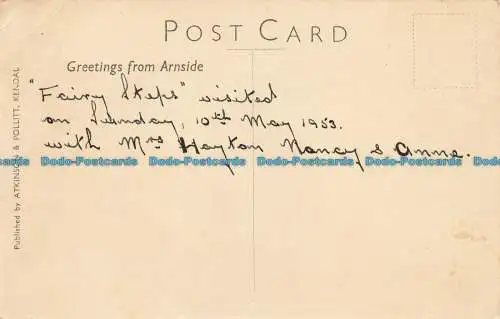 POST CARD
Greetings from Arnside
"Fairy Steps" visited
on Sunday, 10th May 1953.
with Mrs Hayton Nancy & Anne.
Dodo-Postcards Dodo-Postcards Dodo-Postcards Dodo-Postcards Dodo-Postcards Dodo-Postcards
Published by ATKINSON & POLLITT, KENDAL